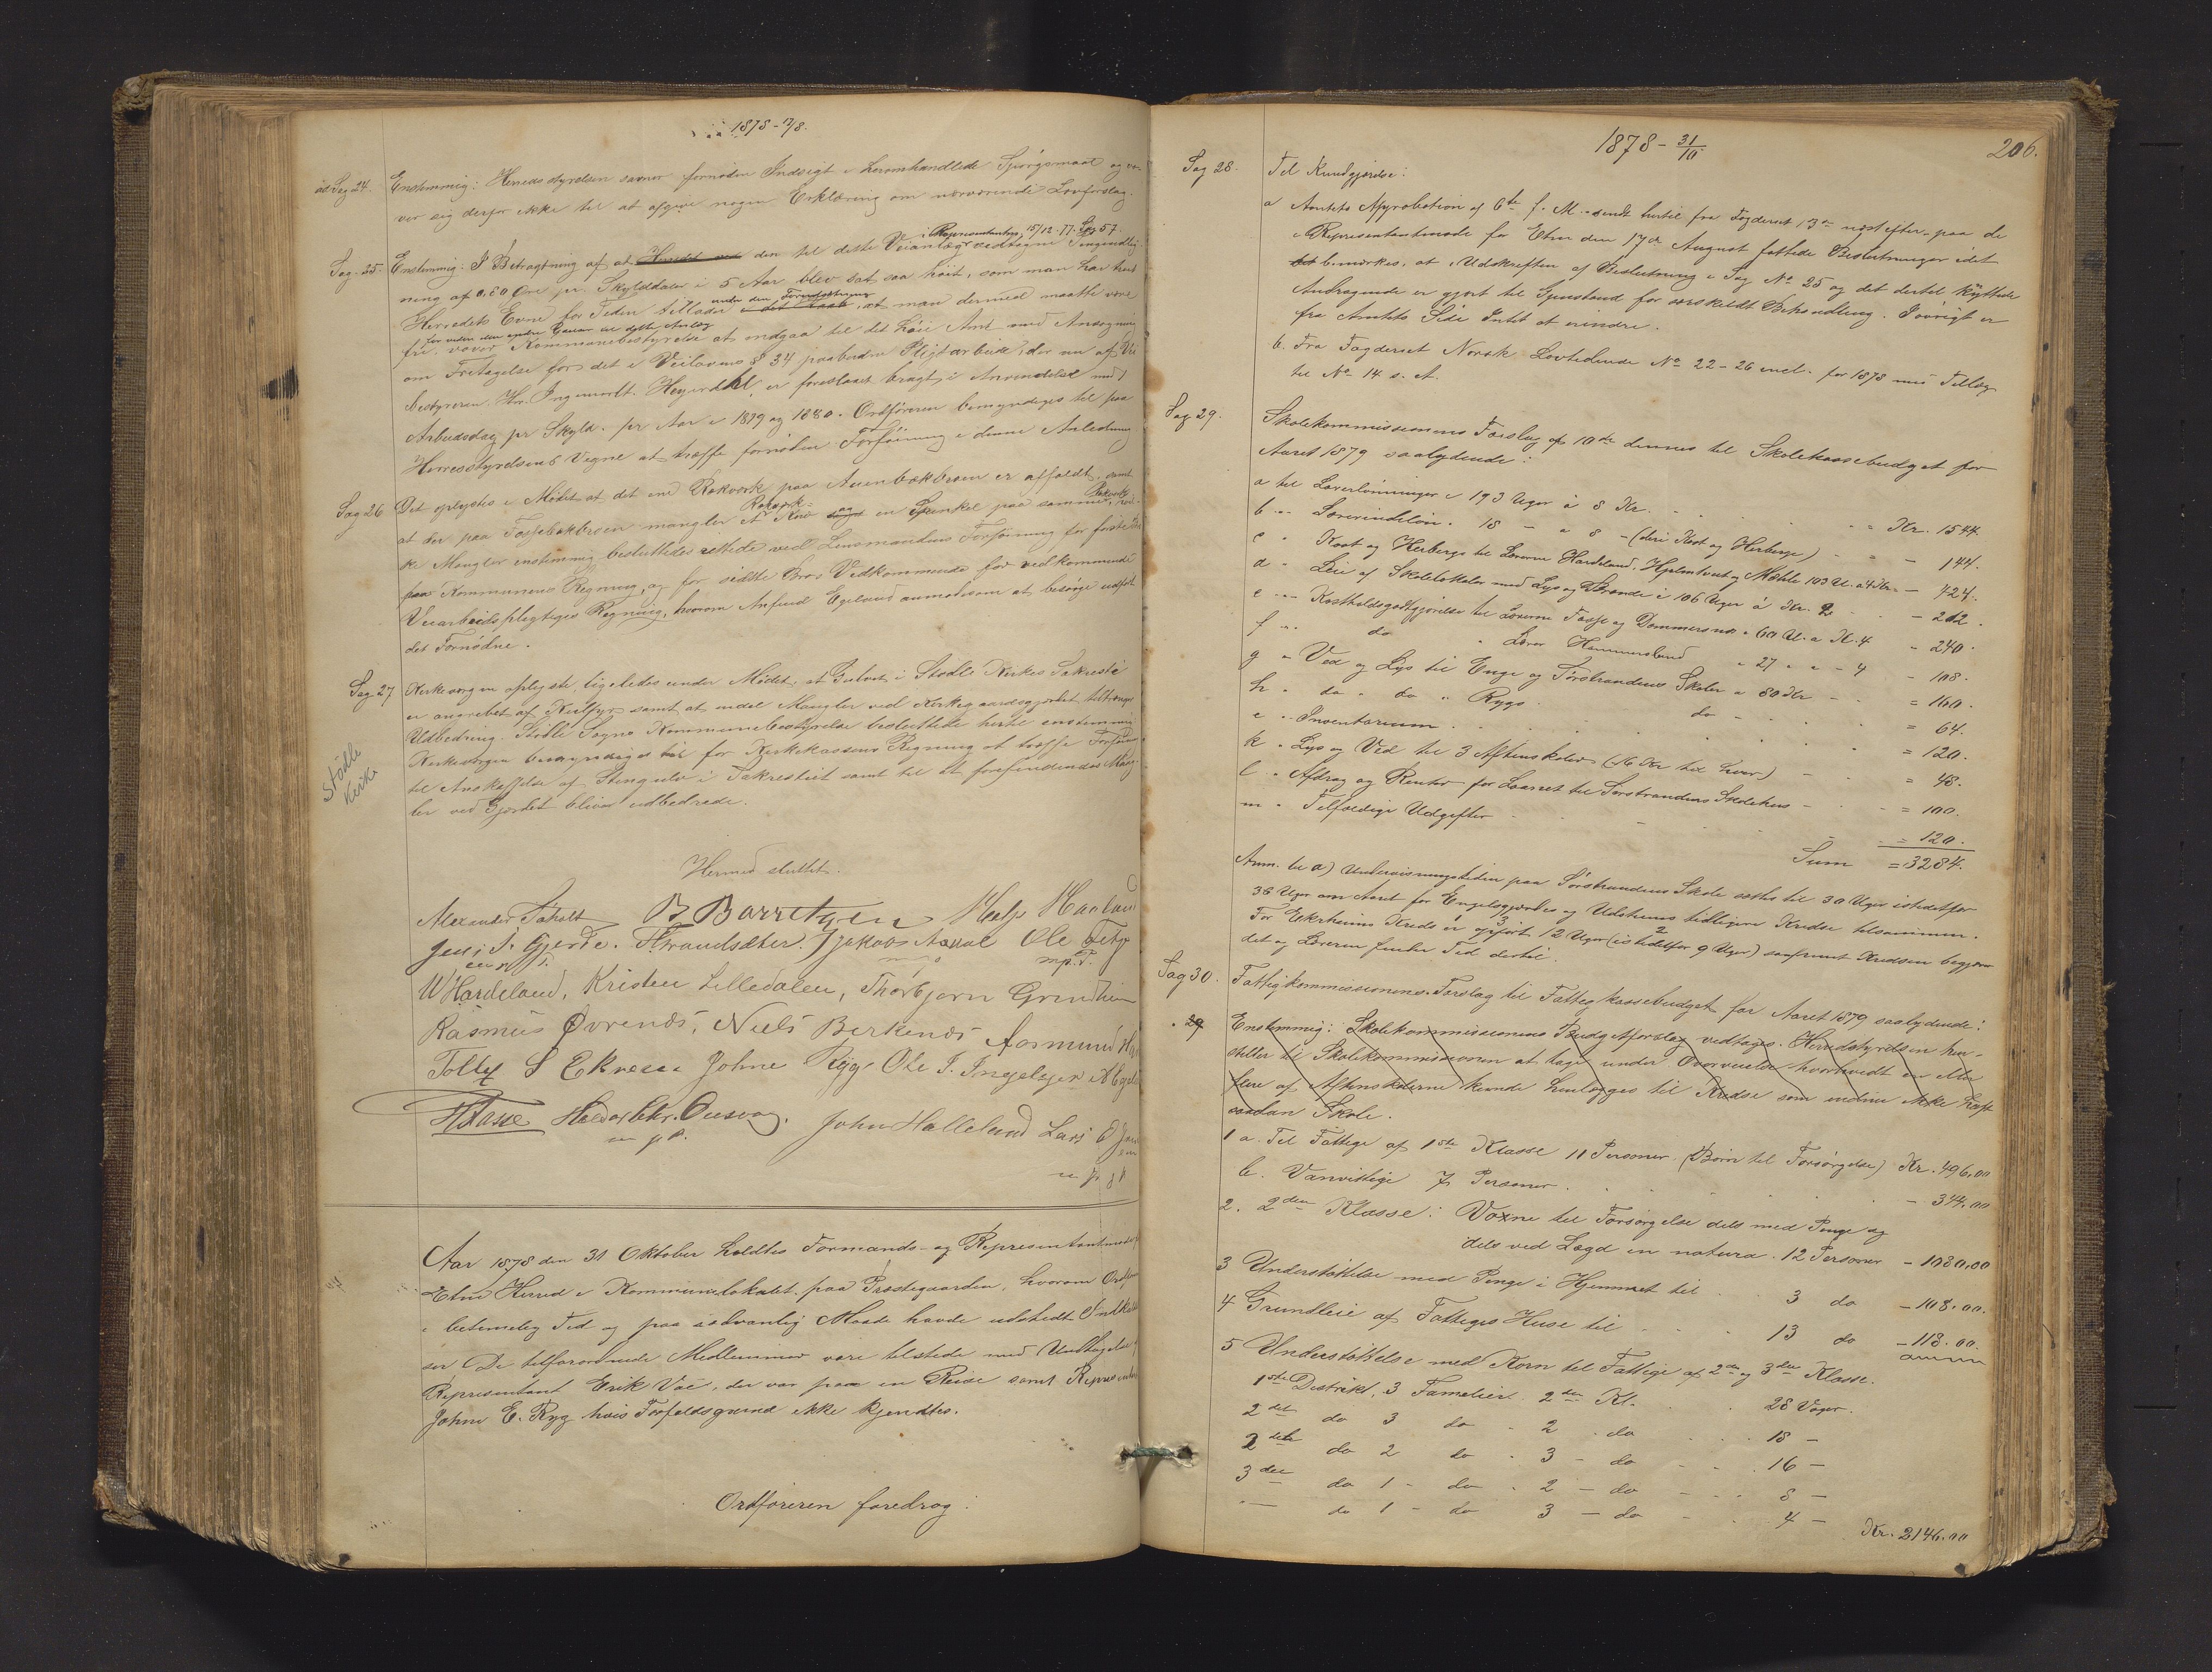 1878 - 17/8.
ad Sag 24. Enstemmig: Herredsstyrelsen savner fornøden Indsigt i heromhandlede Spørgsmaal og
ver sig derfor ikke til at afgive nogen Erklæring om nærværende Lovforslag.
i Repræsentantmøde 15/12 77. Sag 57.
Sag. 25. Enstemmig. I Betragtning af at den til dette Veianlæg vedtagne Pengeudlig-
ning af 0,80 Øre pr. Skylddaler i 5 Aar blev sat saa høit, som man har
Herredets Evne for Tiden tillader under den Forudsætning at man dermed maatte være
fri for videre eller andre Byrder til dette Anlæg
vover Kommunebestyrelse at indgaa til det høie Amt med Ansøgning
om Fritagelse for det i Veilovens § 34 paabudne Pligtarbeide, der nu af Vei
bestyreren Hr. Ingenieurlt. Heyerdahl er foreslaaet bragt i Anvendelse med 1
Arbeidsdag pr Skyld. pr Aar i 1879 og 1880. Ordføreren bemyndiges til paa
Herredsstyrelsens Vegne at træffe fornøden Forføining i denne Anledning
Sag 26 Det oplystes i Mødet at det ene Rækværk paa Auenbækbroen er affaldt, samt
Rækværk
at der paa Fossebækbroen mangler et og en paa samme,
ke Mangler enstemmig besluttedes rettede ved Lensmandens Forføining for første
paa Kommunens Regning, og for sidste Bros Vedkommende for vedkommende
Veiarbeidspligtiges Regning, hvorom Anfind Egeland anmodes om at besørge udført
det Fornødne.
Sag 27 Kirkevergen oplyste ligeledes under Mødet, at Gulvet i Stødle Kirkes Sakresti
er angrebet af samt at endel Mangler ved Kirkegaardsgjerdet tiltrænger
Udbedring. Stødle Sogns Kommunebestyrelse besluttede hertil enstemmig
Kirkevergen bemyndiges til for Kirkekassens Regning at træffe Forføining
til Anskaffelse af Stengulv i Sakrestiet samt til at forefindende Mang-
ler ved Gjerdet bliver udbedrede.
Stødle
Kirke
Hermed sluttet.
Alexander Søholt B Børretzen Helje Haaland
Jens J. Gjerde. Strandsæter. Jakob Ole
m p. P.
W Hardeland, Kristen Lilledalen, Thorbjørn Grindheim
Rasmus Øvrenes, Niels Berkenes Aasmund
Tolly S Ekren Johne Ryg Ole J. Ingelsgjer
H Fosse Haldor Chr. Ousvog. John Halleland Lars E
m p P.
Aar 1878 den 31 Oktober holdtes Formands- og Repræsentantmøde
Etne Herred i Kommunelokalet paa Præstegaarden, hvorom Ordføreren
i betimelig Tid og paa sædvanlig Maade havde udstedt Indkald
ser. De tilforordnede Medlemmer vare tilstede med Undtagelse
Repræsentant Erik Vae, der var paa en Reise samt Repræsentant
Johne E. Ryg hvis Forfaldsgrund ikke kjendtes.
Ordføreren foredrog:
1878 - 31/10
206.
Sag 28. Til Kundgjørelse:
a Amtets Approbation af 6te f. M. sendt hertil fra Fogderiet 13de næstefter paa de
i Repræsentantmøde for Etne den 17de August fattede Beslutninger idet
bemærkes, at Udskriften af Beslutning i Sag No 25 og det dertil knyttede
Andragende er gjort til Gjenstand for særskildt Behandling. I øvrigt er
fra Amtets Side Intet at erindre.
b. Fra Fogderiet Norsk Lovtidende No 22-26 incl. for 1878 med Tillæg
til No 14 s. A.
Sag 29. Skolekommissionens Forslag af 10de dennes til Skolekassebudget for
Aaret 1879 saalydende:
a til Lærerlønninger i 193 Uger à 8 Kr. = Kr. 1544.
b " Lærerindeløn. 18 - a 8 - (deri Kost og Herberge) - 144.
c " Kost og Herberge til Lærerne Hardeland, Hjelmtveit og Mæhle 103 U. a 4 Kr. - 424.
d " Leie af Skolelokaler med Lys og Brænde i 106 Uger à Kr. 2 - 212.
e " Kostholdsgodtgjørelse til Lærerne Fosse og Dommersnæs i 60 U. a Kr. 4 - 240.
f " do " Lærer Hammerslund " 27 " a - 4 - 108.
g " Ved og Lys til Enge og Sørstrandens Skoler a 80 Kr - = 160.
h " do " do " Rygs do = 64.
i " Inventarium = 120.
k " Lys og Ved til 3 Aftenskoler (16 Kr til hver) = 48.
l " Afdrag og Renter for Laanet til Sørstrandens Skolehus = 100.
m " Tilfældige Udgifter = 120.
Sum = 3284.
Anm. til a) Undervisningstiden paa Sørstrandens Skole sættes til 30 Uger istedetfor
36 Uger om Aaret for Engelsgjærdes og Udstrens tidligere Kredse tilsammen.
For Ekrheims Kreds er opført 12 Uger (istedetfor 9 Uger) saafremt Kredsen begjærer
det og Læreren finder Tid dertil.
Sag 30. Fattigkommissionens Forslag til Fattigkassebudget for Aaret 1879 saalydende:
" 29. Enstemmig: Skolekommissionens Budgetforslag vedtages. Herredsstyrelsen hen-
stiller til Skolekommissionen at tage under Overveielse hvorvidt en eller
flere af Aftenskolerne kunde henlægges til Kredse som endnu ikke havt
saadan Skole.
1 a. Til Fattige af 1ste Klasse 11 Personer (Børn til Forsørgelse) Kr. 496,00
b. Vanvittige 7 Personer. - 344,00
2. 2den Klasse: Voxne til Forsørgelse dels med Penge og
dels ved Lægd in natura. 12 Personer - 1080,00
3 Understøttelse med Penge i Hjemmet til 3 do - 108.00.
4 Grundleie af Fattiges Huse til 13 do - 118.00.
5 Understøttelse med Korn til Fattige af 2den og 3die Klasse.
1ste Distrikt, 3 Familier 2den Kl. 28 Voger.
2det do 3 do " 2 " do 18 -
2det do 2 do " 3 - do 16 -
3die do 1 - do " 2 - do 8 -
" do 1 - do 3 - do 4 -
Kr. 2146.00